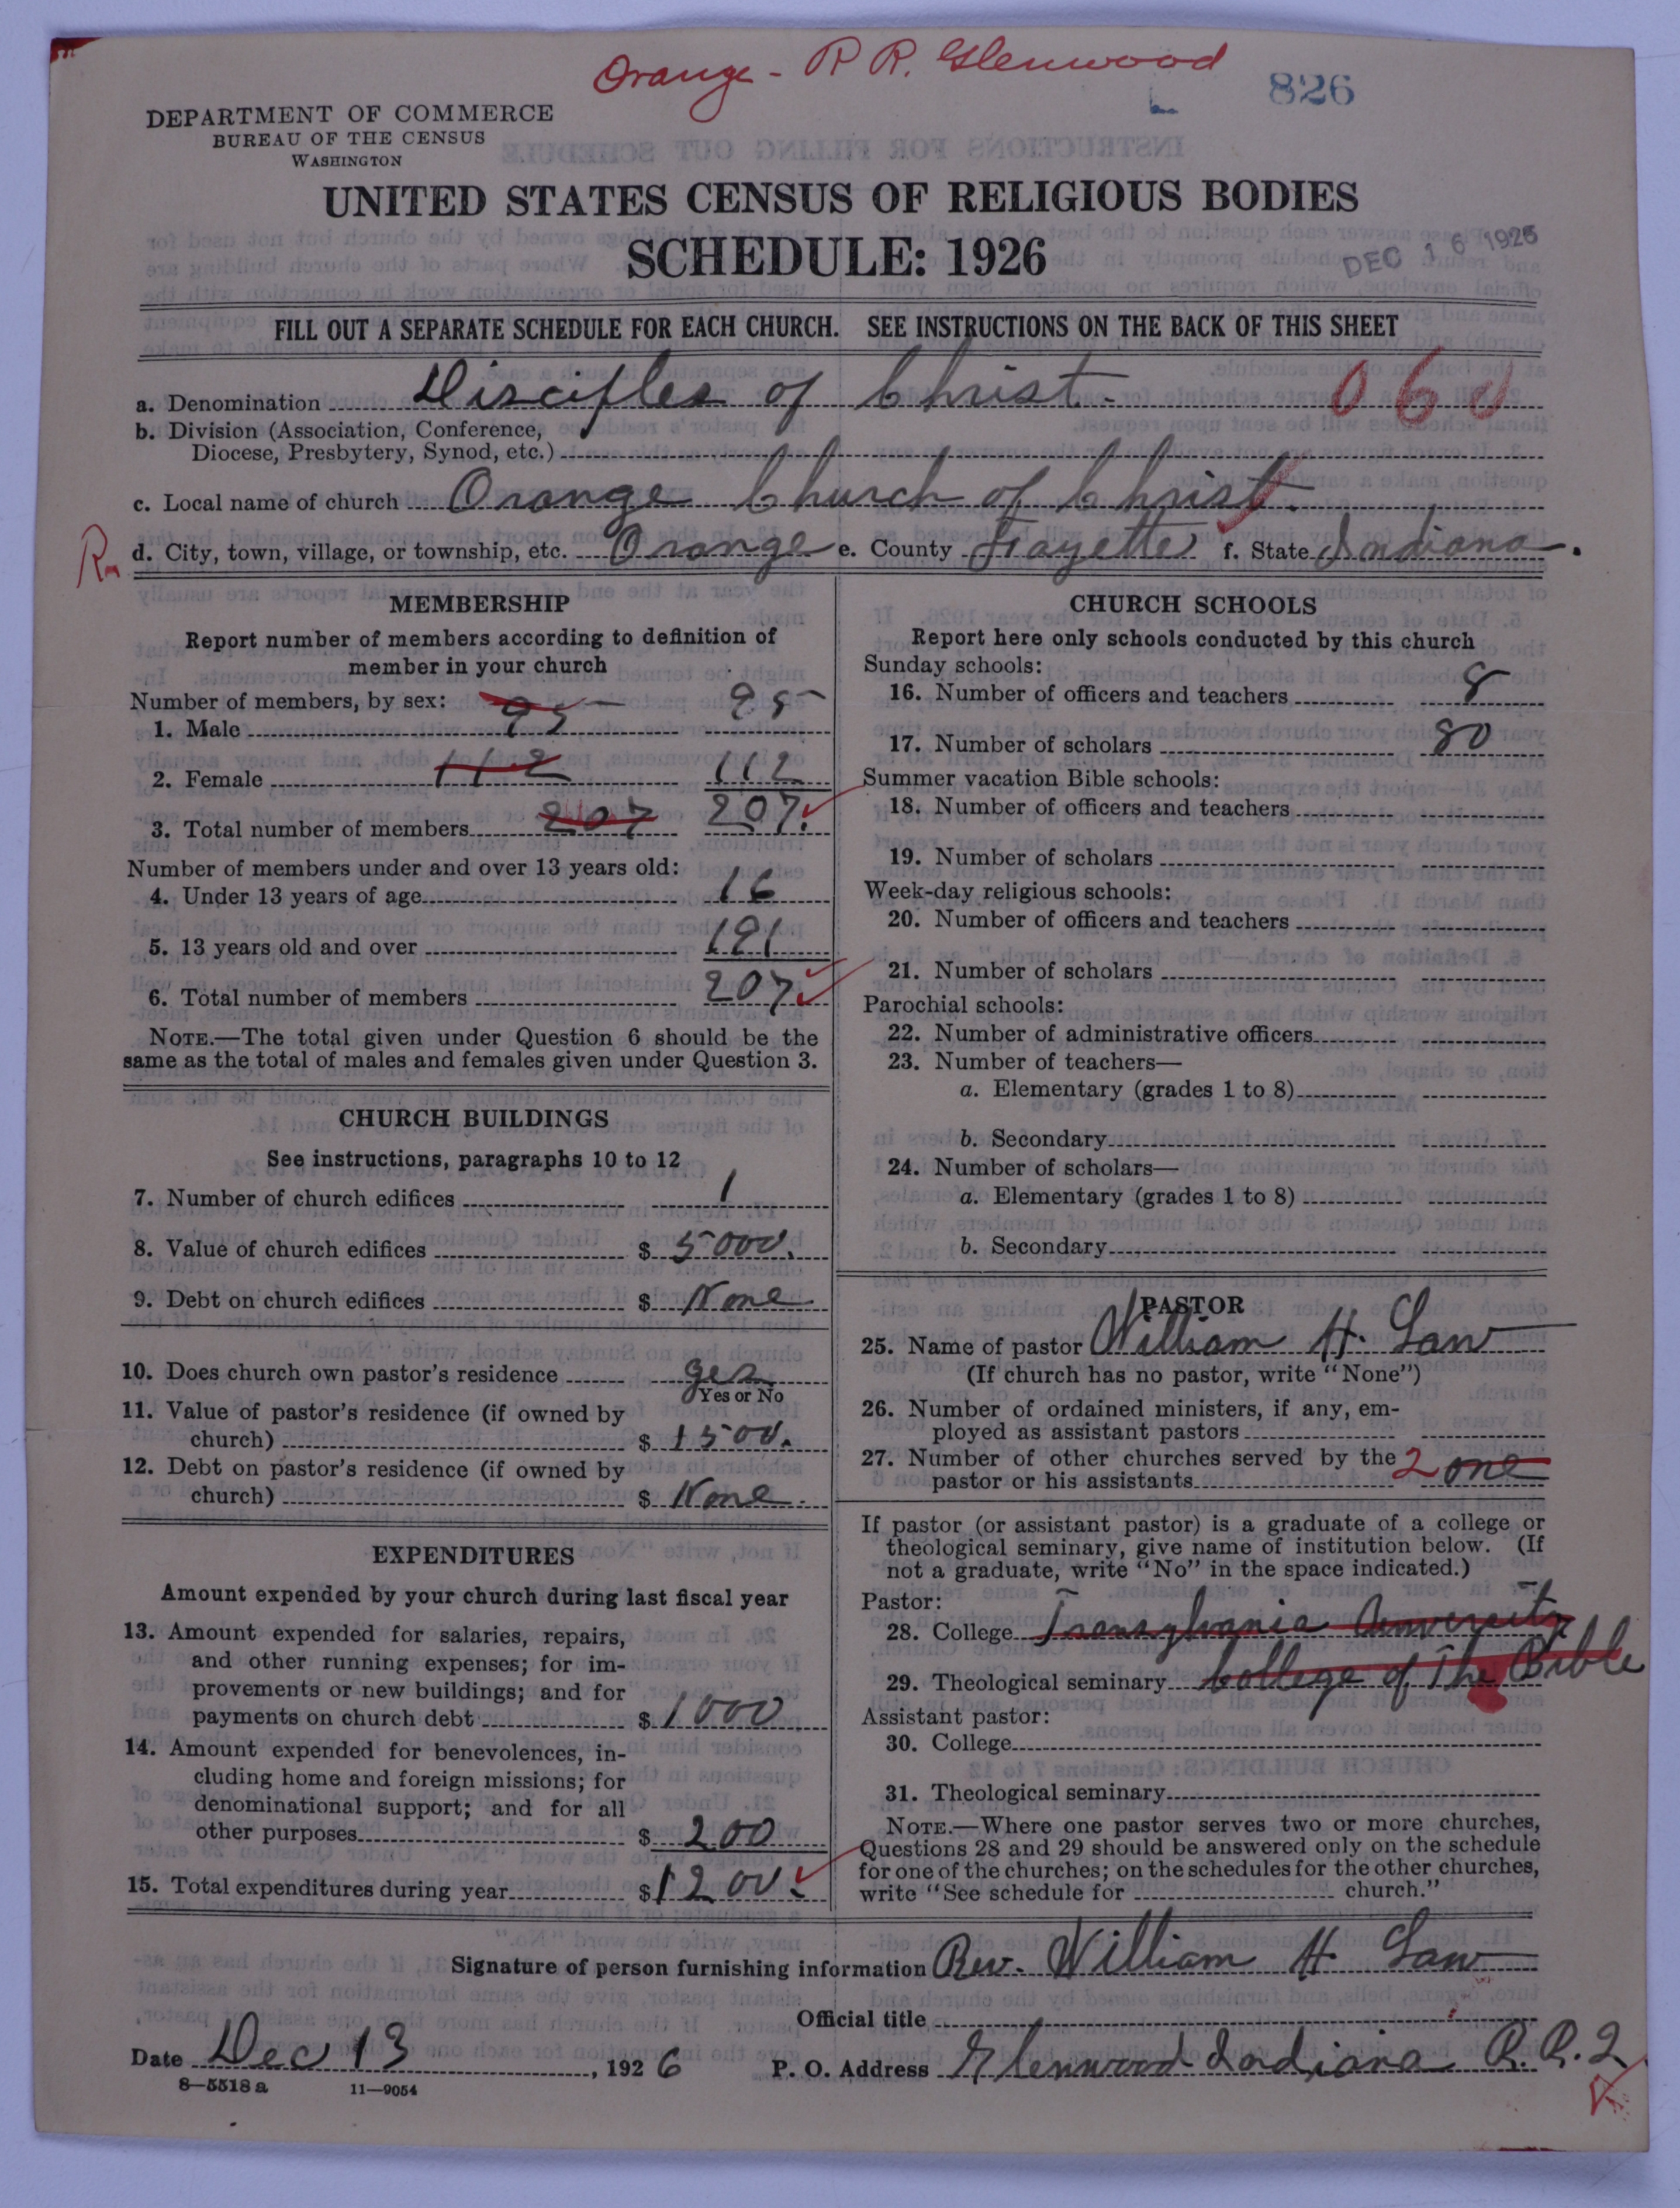 Orange - R R. Glenwood
826
DEPARTMENT OF COMMERCE
BUREAU OF THE CENSUS
WASHINGTON
UNITED STATES CENSUS OF RELIGIOUS BODIES
SCHEDULE: 1926
DEC 16 1926
FILL OUT A SEPARATE SCHEDULE FOR EACH CHURCH. SEE INSTRUCTIONS ON THE BACK OF THIS SHEET
a. Denomination Disciples of Christ. 060
b. Division (Association, Conference,
Diocese, Presbytery, Synod, etc.)
c. Local name of church Orange Church of Christ.
d. City, town, village, or township, etc. Orange e. County Fayette f. State Indiana.
MEMBERSHIP
Report number of members according to definition of
member in your church
Number of members, by sex:
1. Male 95 95
2. Female 112 112
3. Total number of members 207 207.
Number of members under and over 13 years old:
4. Under 13 years of age 16
5. 13 years old and over 191
6. Total number of members 207
NOTE.—The total given under Question 6 should be the
same as the total of males and females given under Question 3.
CHURCH BUILDINGS
See instructions, paragraphs 10 to 12
7. Number of church edifices 1
8. Value of church edifices $ 5000.
9. Debt on church edifices $ None
10. Does church own pastor's residence yes
Yes or No
11. Value of pastor's residence (if owned by
church) $ 1500.
12. Debt on pastor's residence (if owned by
church) $ None.
EXPENDITURES
Amount expended by your church during last fiscal year
13. Amount expended for salaries, repairs,
and other running expenses; for im-
provements or new buildings; and for
payments on church debt $ 1000
14. Amount expended for benevolences, in-
cluding home and foreign missions; for
denominational support; and for all
other purposes $ 200
15. Total expenditures during year $ 1200.
CHURCH SCHOOLS
Report here only schools conducted by this church
Sunday schools:
16. Number of officers and teachers 8
17. Number of scholars 80
Summer vacation Bible schools:
18. Number of officers and teachers
19. Number of scholars
Week-day religious schools:
20. Number of officers and teachers
21. Number of scholars
Parochial schools:
22. Number of administrative officers
23. Number of teachers—
a. Elementary (grades 1 to 8)
b. Secondary
24. Number of scholars—
a. Elementary (grades 1 to 8)
b. Secondary
PASTOR
25. Name of pastor William H. Law
(If church has no pastor, write "None")
26. Number of ordained ministers, if any, em-
ployed as assistant pastors
27. Number of other churches served by the 2 one
pastor or his assistants
If pastor (or assistant pastor) is a graduate of a college or
theological seminary, give name of institution below. (If
not a graduate, write "No" in the space indicated.)
Pastor:
28. College Transylvania University
29. Theological seminary College of The Bible
Assistant pastor:
30. College
31. Theological seminary
NOTE.—Where one pastor serves two or more churches,
Questions 28 and 29 should be answered only on the schedule
for one of the churches; on the schedules for the other churches,
write "See schedule for church."
Signature of person furnishing information Rev. William H. Law
Official title
Date Dec 13, 1926 P. O. Address Glenwood Indiana R.R.2
8—5518 a 11—9054